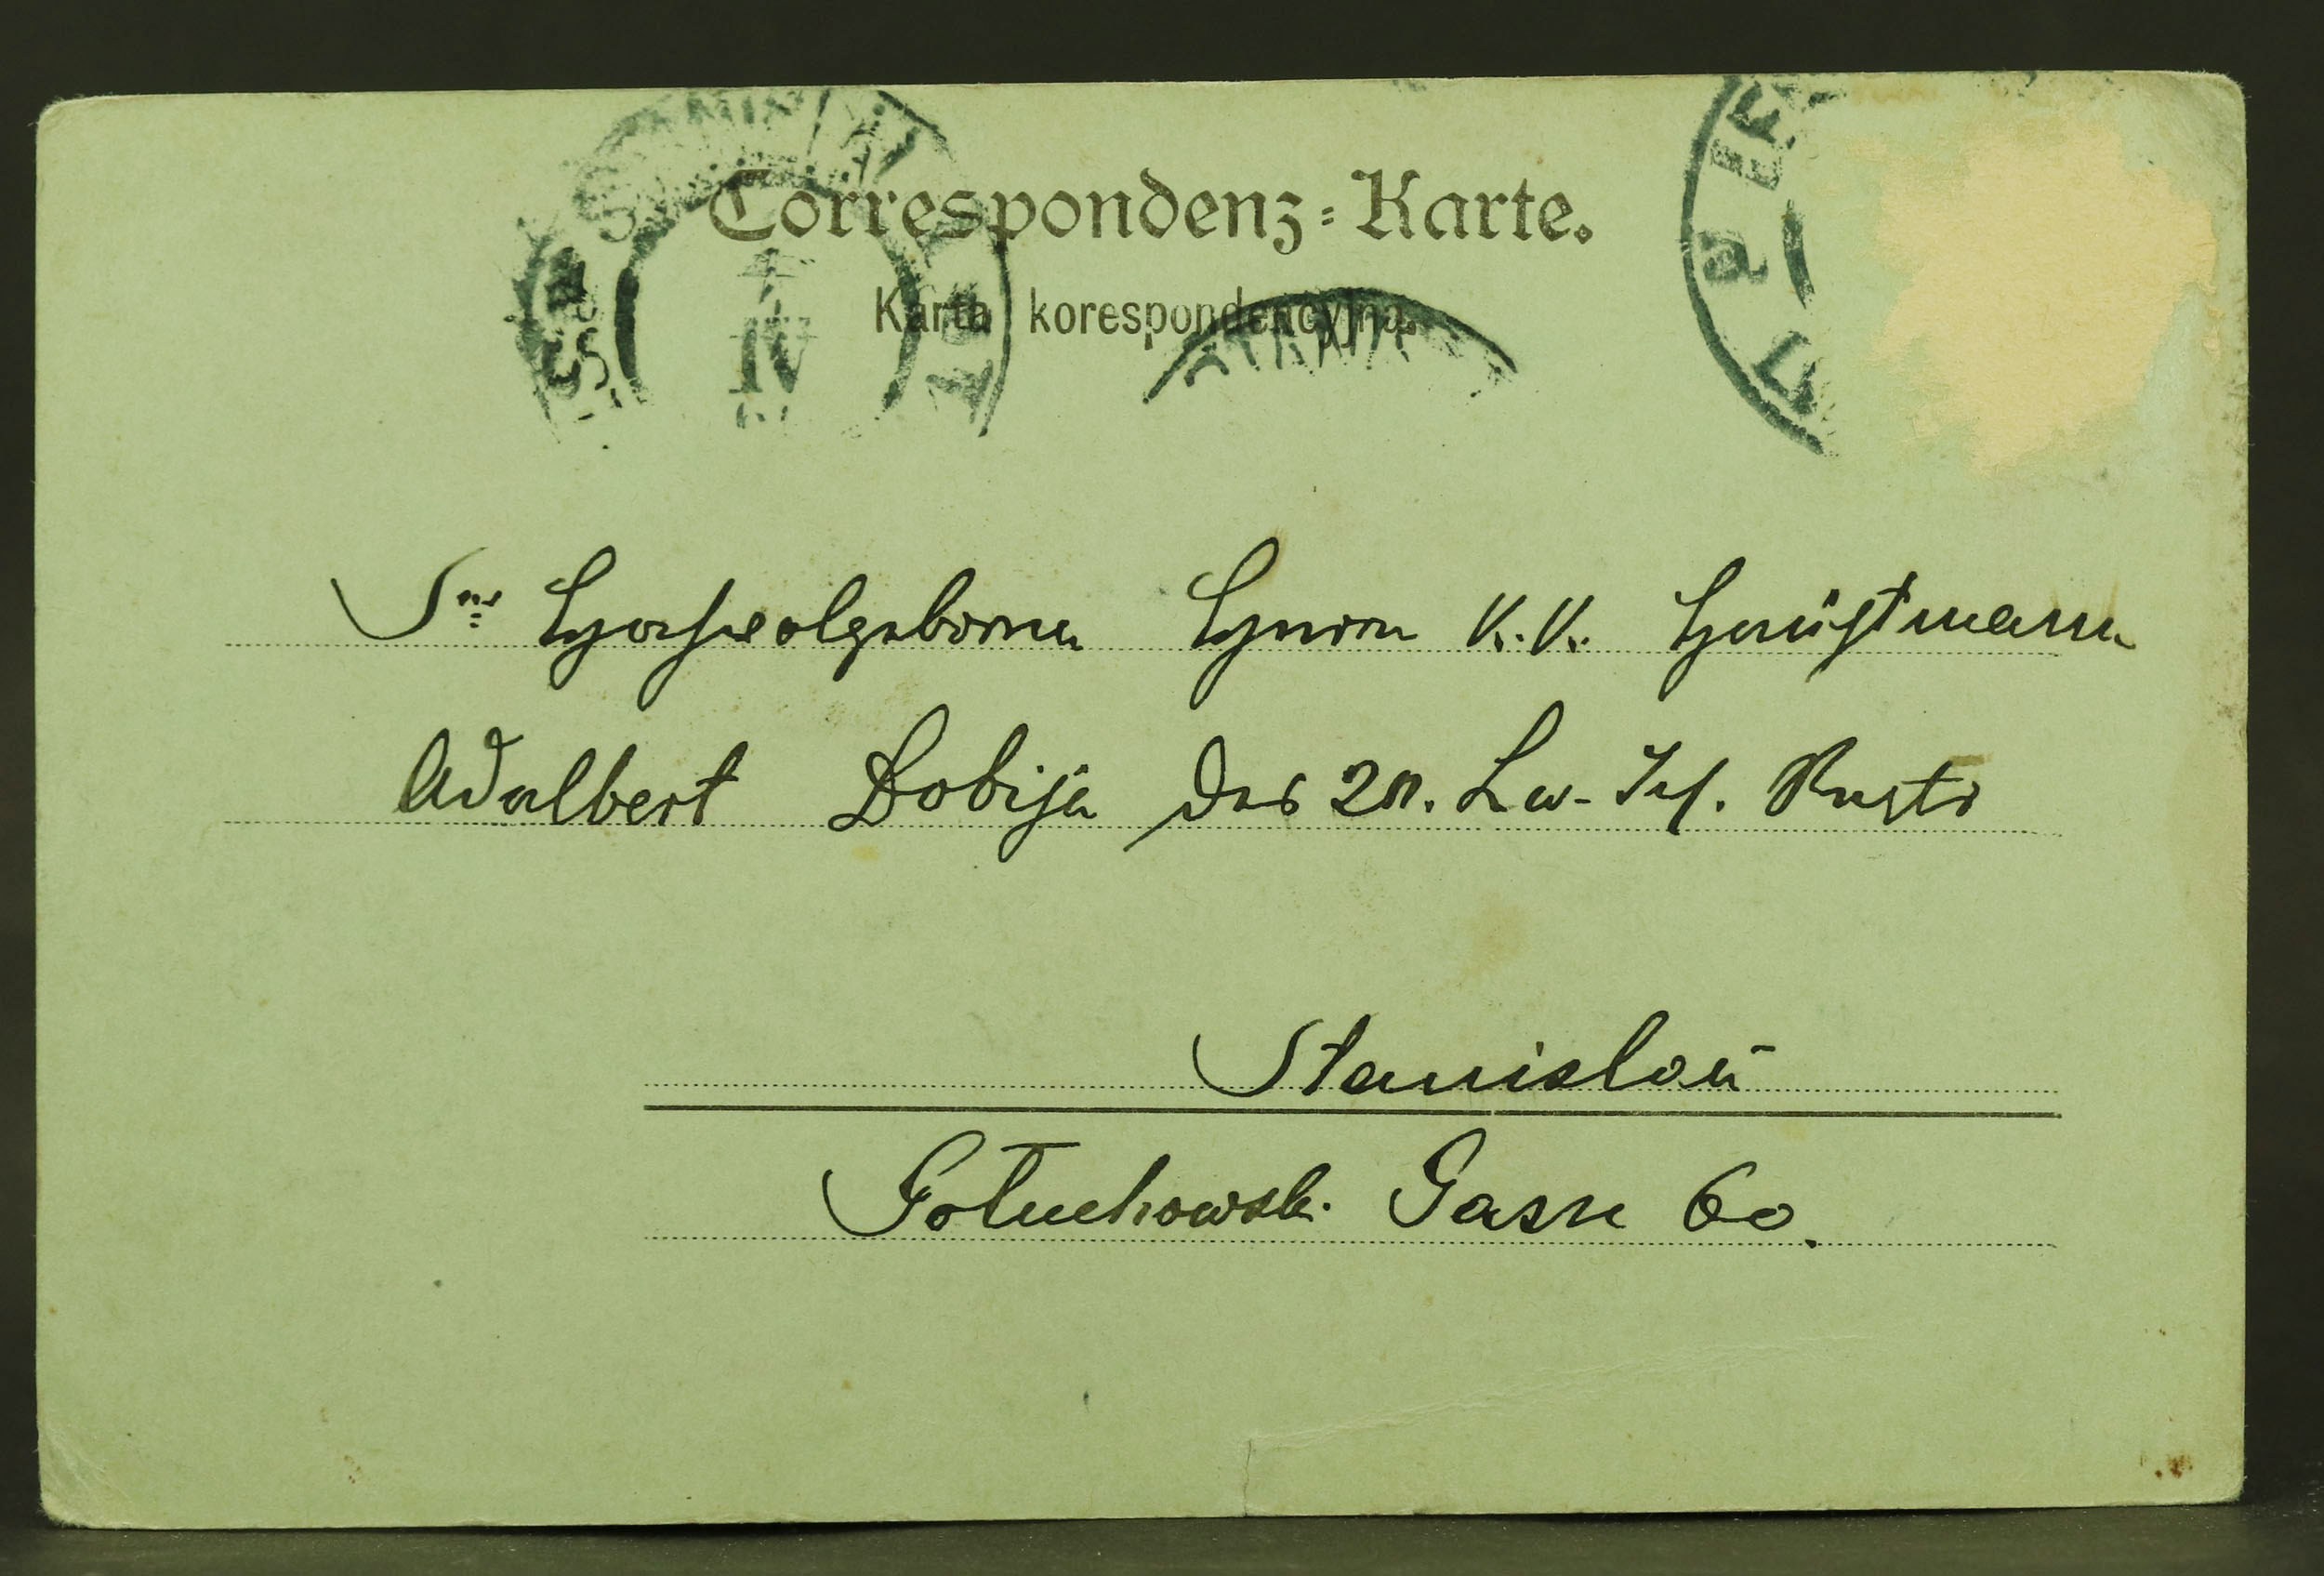 Correspondenz-Karte.
Karta korespondencyjna.
IV
Sr Hochwolgeboren Herrn K. K. Hauptmann
Adalbert Dobija des 20. Lw- Inf. Regts
Stanislau
Gołuchowsk. Gasse 60.